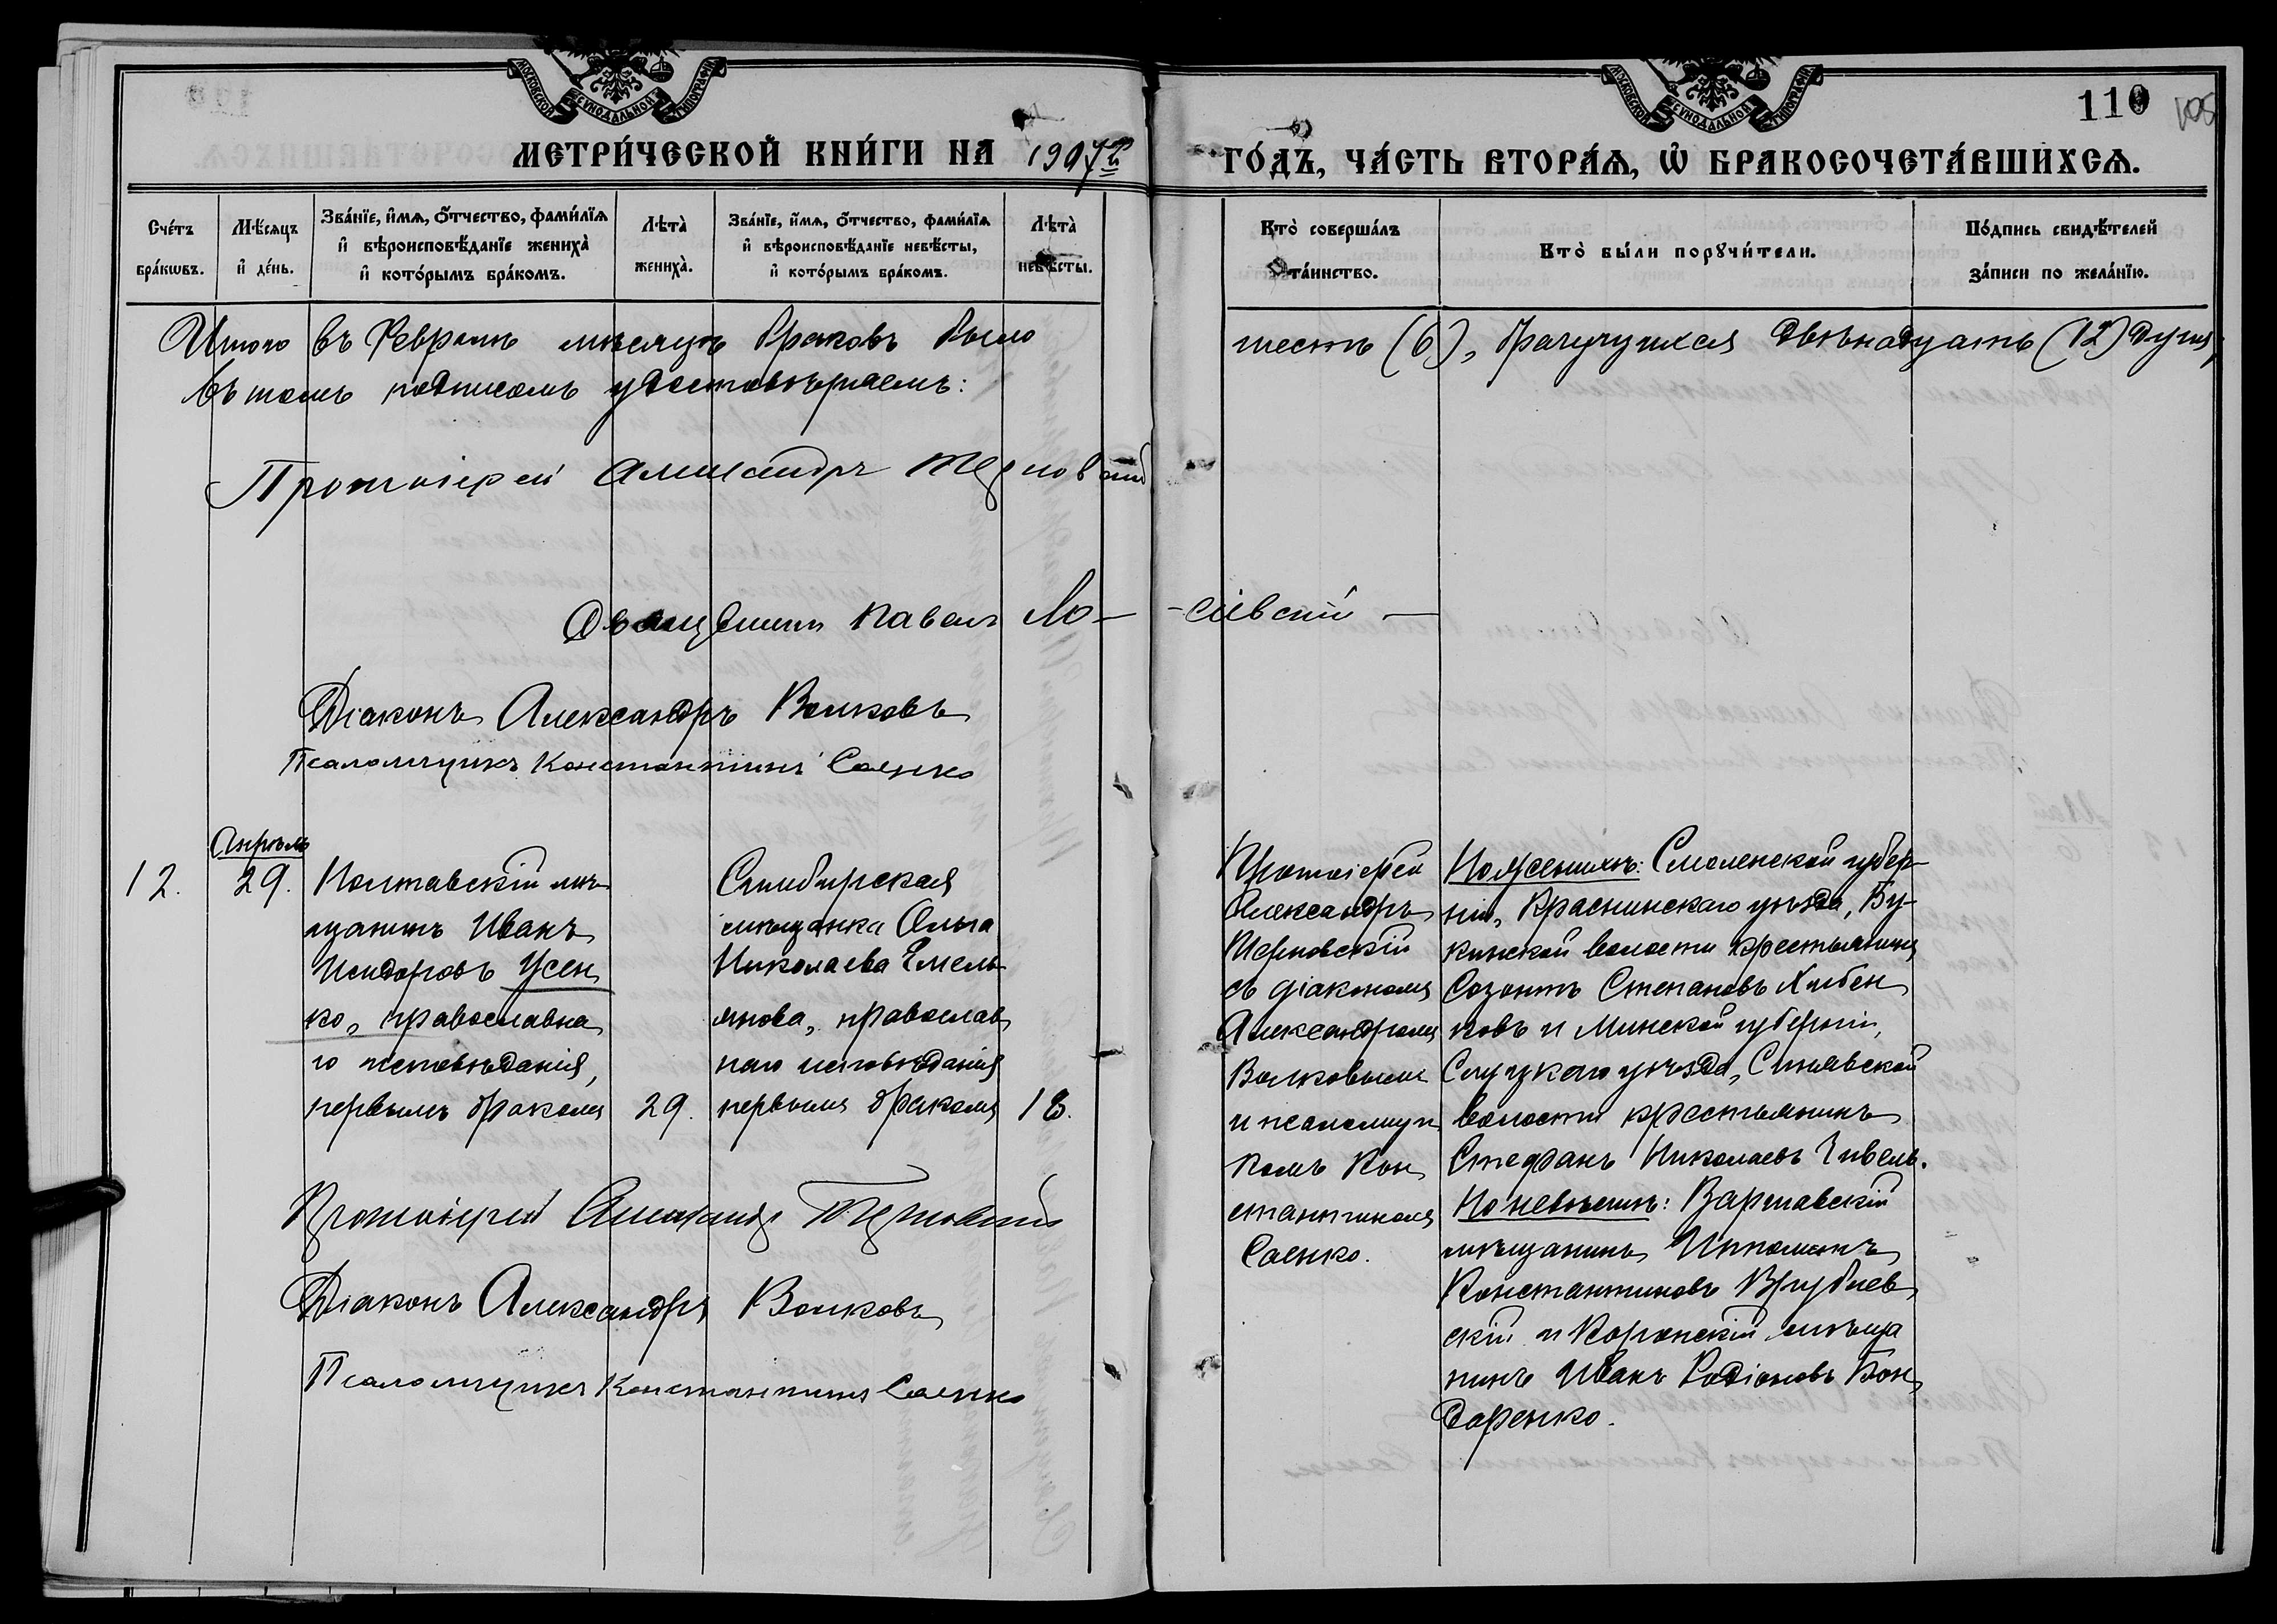 МОСКОВСКОЙ СѴНОДАЛЬНОЙ ТИПОГРАФІИ
МОСКОВСКОЙ СѴНОДАЛЬНОЙ ТИПОГРАФІИ
110
105
МЕТРИ́ЧЕСКОЙ КНИ́ГИ НА 1907й ГО́ДЪ, ЧА́СТЬ ВТОРА́Ѧ, Ѡ҆ БРАКОСОЧЕТА́ВШИХСѦ.
Сче́тъ
бра́кѡвъ.
Мѣ́сѧцъ
и҆ де́нь.
Зва́нїе, и҆́мѧ, ѻ҆́тчество, фами́лїѧ
и҆ вѣроисповѣ́данїе жениха̀
и҆ кото́рымъ бра́комъ.
Лѣта̀
жениха̀.
Зва́нїе, и҆́мѧ, ѻ҆́тчество, фами́лїѧ
и҆ вѣроисповѣ́данїе невѣ́сты,
и҆ кото́рымъ бра́комъ.
Лѣта̀
невѣ́сты.
Кто̀ соверша́лъ
та́инство.
Кто̀ бы́ли порꙋчи́тели.
По́дпись свидѣ́телей
за́писи по жела́нїю.
Итого въ Февралѣ мѣсяцѣ браковъ было шесть (6), брачущихся двѣнадцать (12) душъ,
въ томъ подписомъ удостовѣряемъ:
Протоіерей Александръ Терновскій
Священникъ Павелъ Ло- -сіевскій —
Діаконъ Александръ Волковъ
Псаломщикъ Константинъ Саенко
Апрѣль
12.
29.
Полтавскій мѣ-
щанинъ Иванъ
Исидоровъ Усен
ко, православна
го исповѣданія,
первымъ бракомъ
29.
Симбирская
мѣщанка Ольга
Николаева Емель
янова, православ
наго исповѣданія
первымъ бракомъ
18.
Протоіерей
Александръ
Терновскій
съ діакономъ
Александромъ
Волковымъ
и псаломщи
комъ Кон
стантиномъ
Саенко.
По женихѣ: Смоленской губер-
ніи, Краснинскаго уѣзда, Бу-
кинской волости крестьянинъ
Созонтъ Степановъ Хлѣбен
ковъ и Минской губерніи,
Слуцкаго уѣзда, Синявской
волости крестьянинъ
Стефанъ Николаевъ Гивель.
По невѣстѣ: Варшавскій
мѣщанинъ Ипполитъ
Константиновъ Врублев
скій и Коронскій мѣща
нинъ Иванъ Родіоновъ Бон
даренко.
Протоіерей Александръ Терновскій
Діаконъ Александръ Волковъ
Псаломщикъ Константинъ Саенко